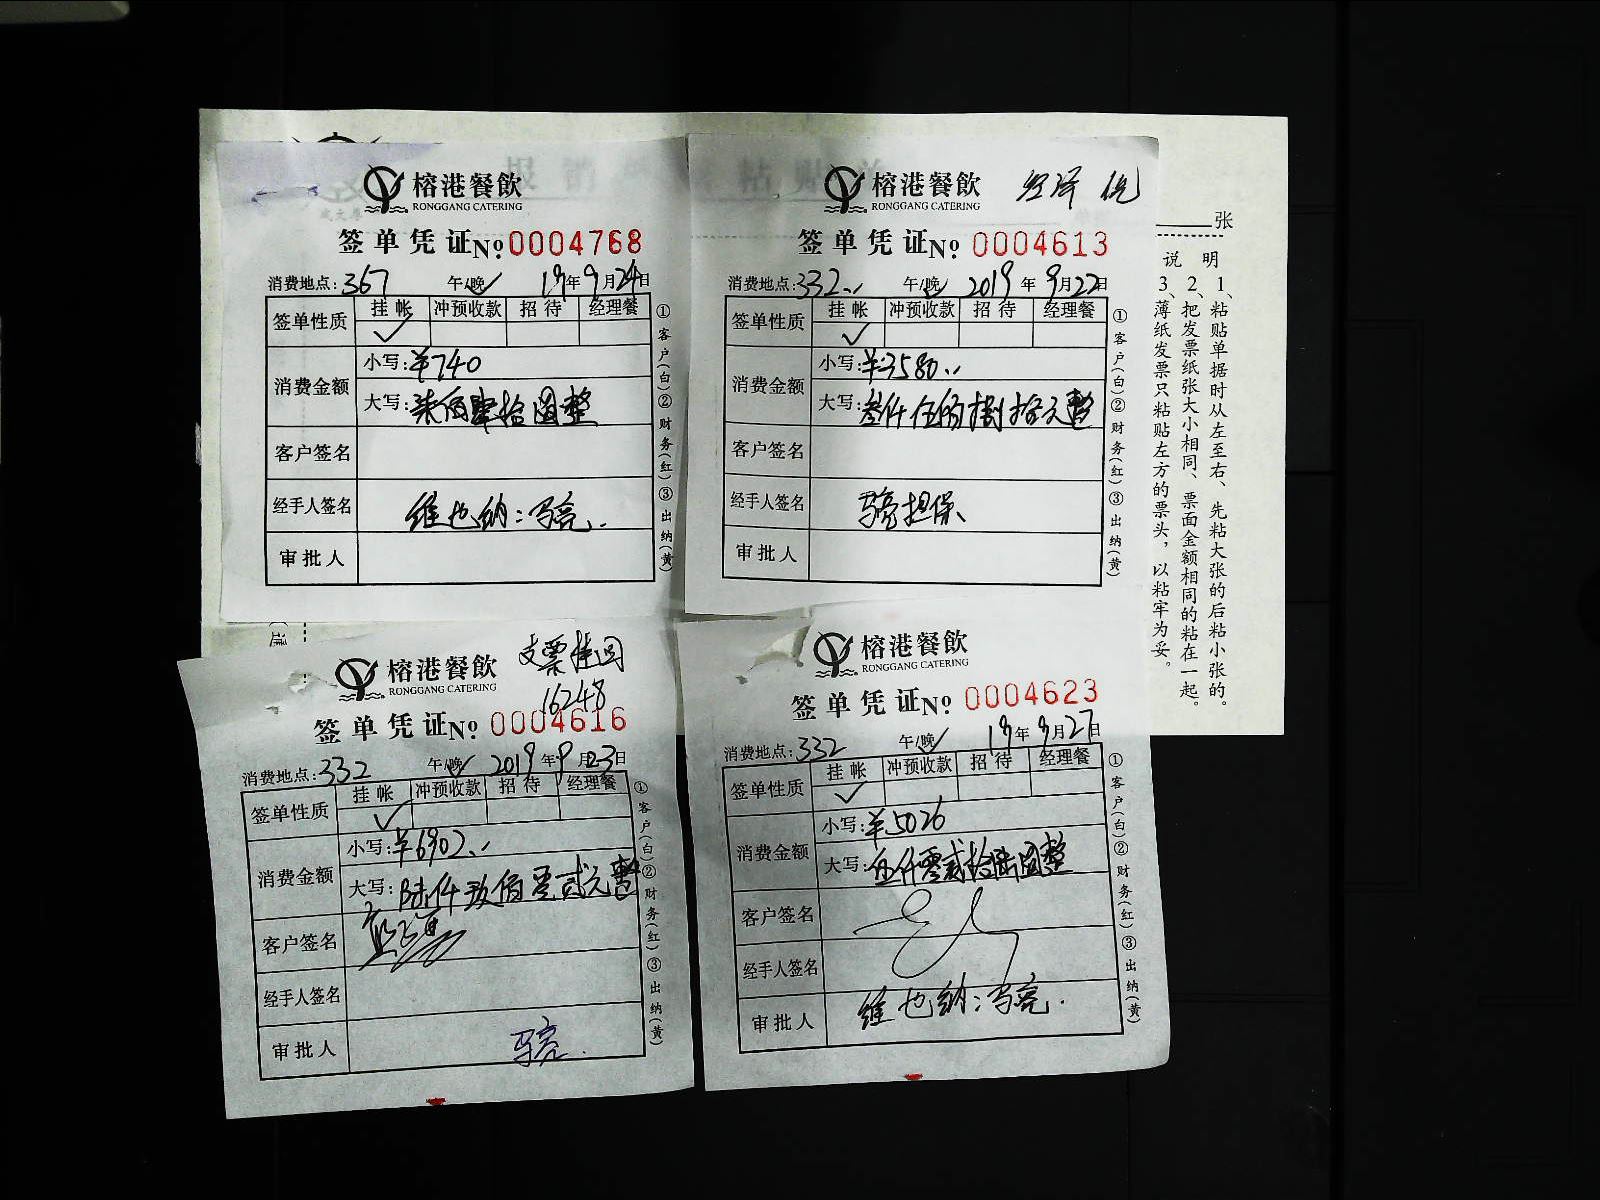 榕港餐飲
RONGGANG CATERING
签单凭证 No 0004768
消费地点:367 午/晚 19年9月24日
签单性质 挂帐 冲预收款 招待 经理餐
✓
消费金额 小写:¥740
大写:柒佰肆拾圆整
客户签名
经手人签名 维也纳:马亮.
审批人
①客户(白)②财务(红)③出纳(黄)
榕港餐飲
RONGGANG CATERING
签单凭证 No 0004613
消费地点:332 午/晚 2019年9月22日
签单性质 挂帐 冲预收款 招待 经理餐
✓
消费金额 小写:¥3580
大写:叁仟伍佰捌拾元整
客户签名
经手人签名 马亮担保
审批人
①客户(白)②财务(红)③出纳(黄)
张
说明
1、粘贴单据时从左至右、先粘大张的后粘小张的。
2、把发票纸张大小相同、票面金额相同的粘在一起。
3、薄纸发票只粘贴左方的票头，以粘牢为妥。
榕港餐飲
RONGGANG CATERING
支票挂回
16248
签单凭证 No 0004616
消费地点:332 午/晚 2019年9月23日
签单性质 挂帐 冲预收款 招待 经理餐
✓
消费金额 小写:¥6902
大写:陆仟玖佰零贰元整
客户签名
经手人签名
审批人 马亮.
①客户(白)②财务(红)③出纳(黄)
榕港餐飲
RONGGANG CATERING
签单凭证 No 0004623
消费地点:332 午/晚 19年9月27日
签单性质 挂帐 冲预收款 招待 经理餐
✓
消费金额 小写:¥5026
大写:伍仟零贰拾陆圆整
客户签名
经手人签名
审批人 维也纳:马亮.
①客户(白)②财务(红)③出纳(黄)